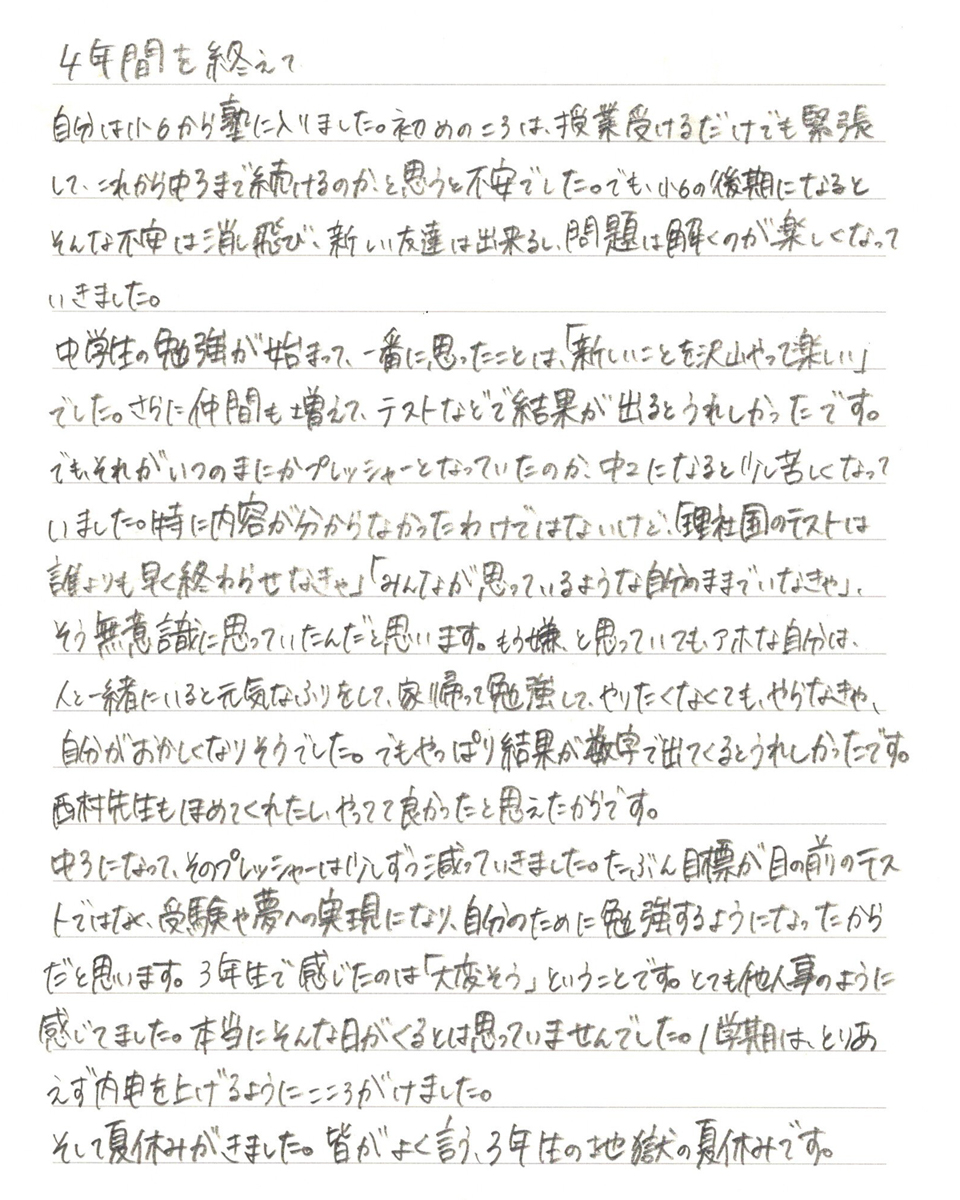 4年間を終えて
自分は小6から塾に入りました。初めのころは、授業受けるだけでも緊張
して、これから中3まで続けるのか、と思うと不安でした。でも、小6の後期になると
そんな不安は消し飛び、新しい友達は出来るし、問題は解くのが楽しくなって
いきました。
中学生の勉強が始まって、一番に思ったことは、「新しいことを沢山やって楽しい」
でした。さらに仲間も増えて、テストなどで結果が出るとうれしかったです。
でも、それがいつのまにかプレッシャーとなっていたのか、中2になると少し苦しくなって
いました。特に内容が分からなかったわけではないけど、「理社国のテストは
誰よりも早く終わらせなきゃ」「みんなが思っているような自分のままでいなきゃ」、
そう無意識に思っていたんだと思います。もう嫌、と思っていても、アホな自分は、
人と一緒にいると元気なふりをして、家帰って勉強して、やりたくなくても、やらなきゃ、
自分がおかしくなりそうでした。でもやっぱり結果が数字で出てくるとうれしかったです。
西村先生もほめてくれたし、やってて良かったと思えたからです。
中3になって、そのプレッシャーは少しずつ減っていきました。たぶん目標が目の前のテス
トではなく、受験や夢への実現になり、自分のために勉強するようになったから
だと思います。3年生で感じたのは「大変そう」ということです。とても他人事のように
感じてました。本当にそんな日がくるとは思っていませんでした。1学期は、とりあ
えず内申を上げるようにこころがけました。
そして夏休みがきました。皆がよく言う、3年生の地獄の夏休みです。